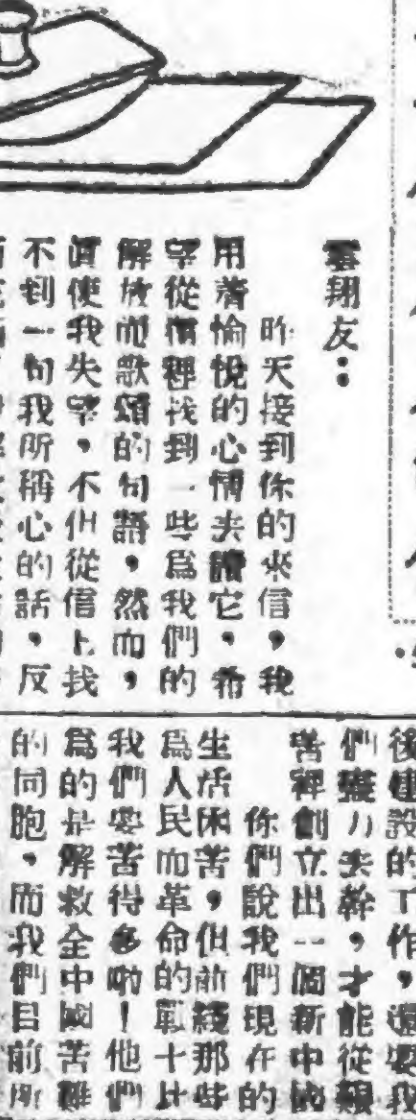 雲翔友：
昨天接到你的來信，我
用着愉悅的心情去讀它，希
望從信裡找到一些爲我們的
解放而歌頌的句語，然而，
眞使我失望，不但從信上找
不到一句我所稱心的話，反
後建設的工作，還要我
們獻力去幹，才能從艱
苦裡創立出一個新中國
你們說我們現在的
生活困苦，但前綫那些
爲人民而革命的戰士比
我們要苦得多喲！他們
爲的是解救全中國苦難
的同胞，而我們目前所